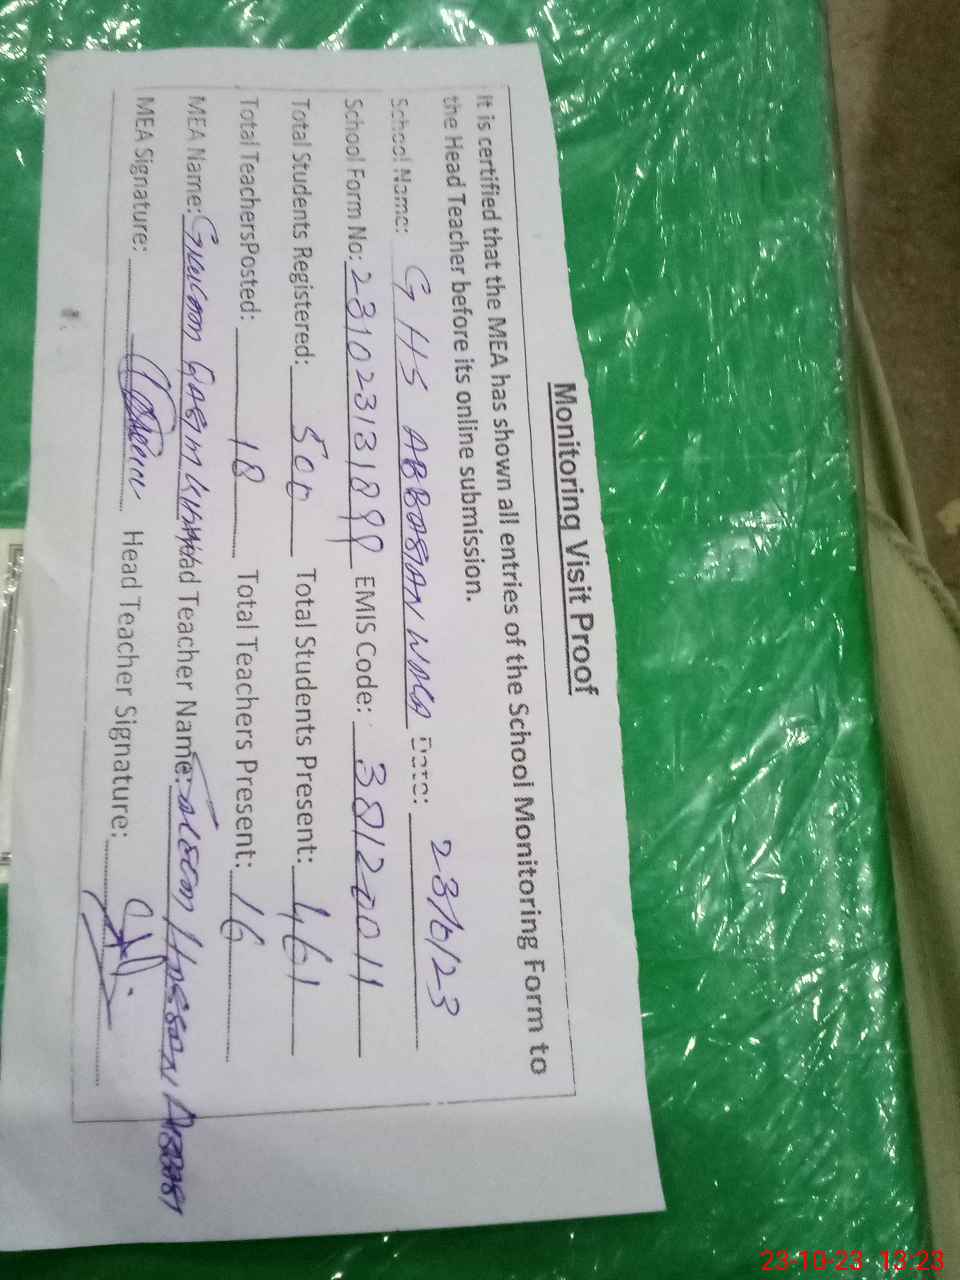 Monitoring Visit Proof
It is certified that the MEA has shown all entries of the School Monitoring Form to
the Head Teacher before its online submission.
School Name: G H S ABBASIAN Date: 23/10/23
School Form No: 23102313188 EMIS Code: 38120011
Total Students Registered: 500 Total Students Present: 461
Total TeachersPosted: 18 Total Teachers Present: 16
MEA Name: Head Teacher Name: Saleem Hassan Abbasi
MEA Signature: Head Teacher Signature:
23-10-23 13:23